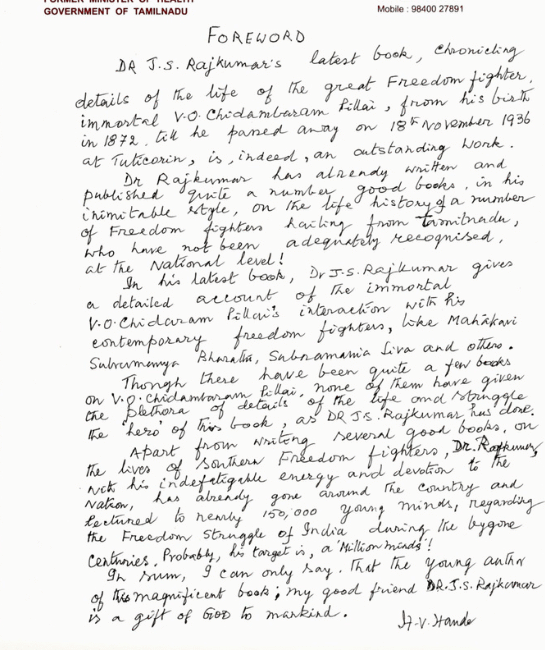 FORMER MINISTER OF HEALTH
GOVERNMENT OF TAMILNADU
Mobile : 98400 27891
FOREWORD
DR J.S. Rajkumar's latest book, chronicling
details of the life of the great Freedom fighter,
immortal V.O. Chidambaram Pillai, from his birth
in 1872, till he passed away on 18th November 1936
at Tuticorin, is, indeed, an outstanding work.
Dr Rajkumar has already written and
published quite a number good books, in his
inimitable style, on the life history of a number
of Freedom fighters hailing from Tamilnadu,
who have not been adequately recognised,
at the National level!
In his latest book, Dr J.S. Rajkumar gives
a detailed account of the immortal
V.O. Chidaram Pillai's interaction with his
contemporary freedom fighters, like Mahakavi
Subramanya Bharathi, Subramania Siva and others.
Though there have been quite a few books
on V.O. Chidambaram Pillai, none of them have given
the plethora of details of the life and struggle
the 'hero' of this book, as DR J.S. Rajkumar has done.
Apart from writing several good books, on
the lives of Southern Freedom fighters, Dr. Rajkumar,
with his indefatigable energy and devotion to the
Nation, has already gone around the country and
lectured to nearly 150,000 young minds, regarding
the Freedom Struggle of India during the bygone
centuries. Probably, his target is, a 'Million minds'!
In sum, I can only say, that the young author
of this magnificent book; my good friend DR. J.S. Rajkumar
is a gift of GOD to mankind.
H.V. Hande